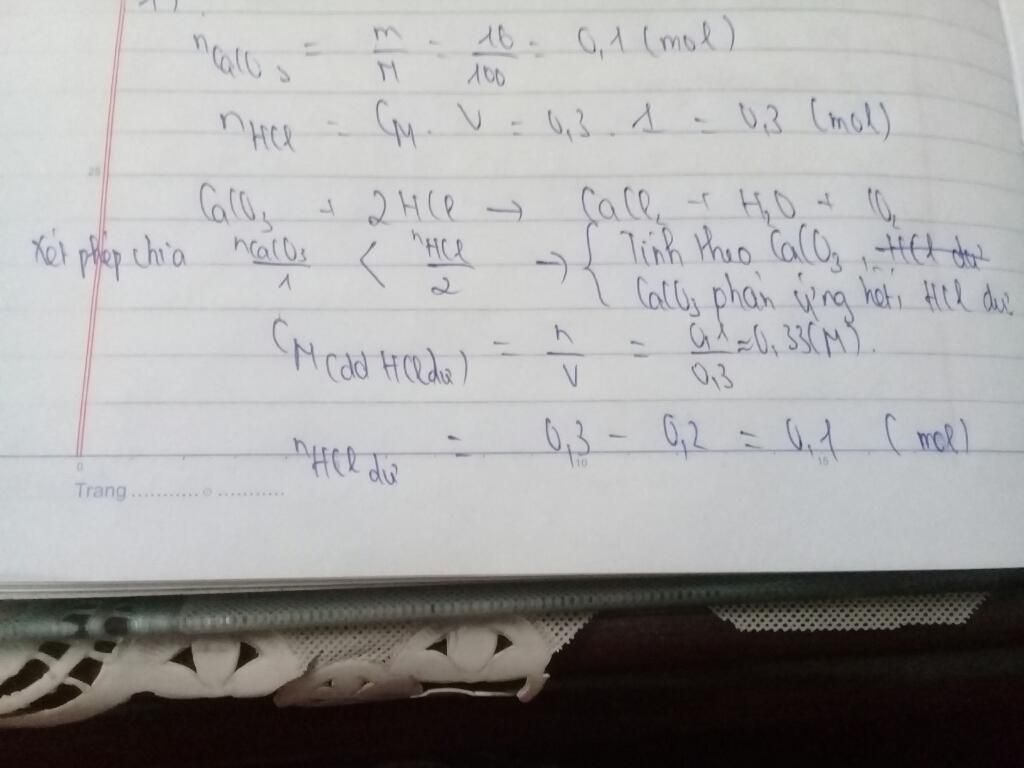 n CaCO3 = m/M = 10/100 = 0,1 (mol)
n HCl = CM . V = 0,3 . 1 = 0,3 (mol)
25
CaCO3 + 2HCl → CaCl2 + H2O + CO2
Xét phép chia nCaCO3/1 < nHCl/2 → { Tính theo CaCO3, HCl dư
CaCO3 phản ứng hết, HCl dư
CM(dd HCl dư) = n/V = 0,1/0,3 ≈ 0,33(M).
nHCl dư = 0,3 - 0,2 = 0,1 (mol)
0 10 15
Trang